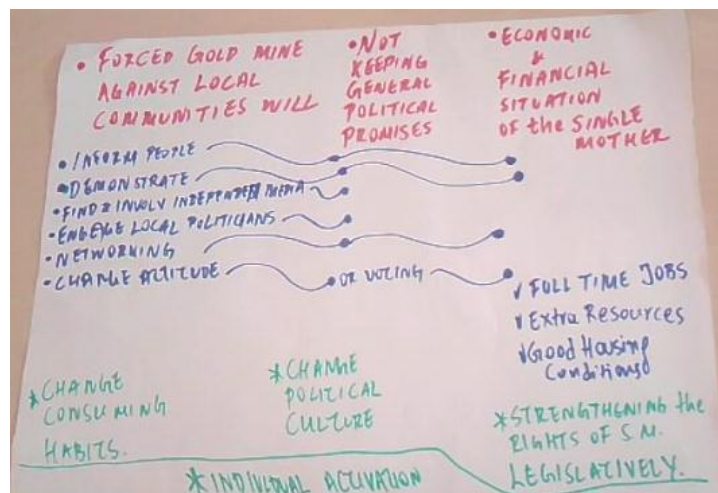 • FORCED GOLD MINE
AGAINST LOCAL
COMMUNITIES WILL
• NOT
KEEPING
GENERAL
POLITICAL
PROMISES
• ECONOMIC
&
FINANCIAL
SITUATION
OF the SINGLE
MOTHER
• INFORM PEOPLE
• DEMONSTRATE
• FIND & INVOLV INDEPENDENT MEDIA
• ENGEGE LOCAL POLITICIANS
• NETWORKING
• CHANGE ALTITUDE
OR VOTING
✓ FULL TIME JOBS
✓ Extra Resources
✓ Good Housing
Conditions
* CHANGE
CONSUMING
HABITS.
* CHANGE
POLITICAL
CULTURE
* STRENGTHENING the
RIGHTS OF S.M.
LEGISLATIVELY.
* INDIVIDUAL ACTIVATION